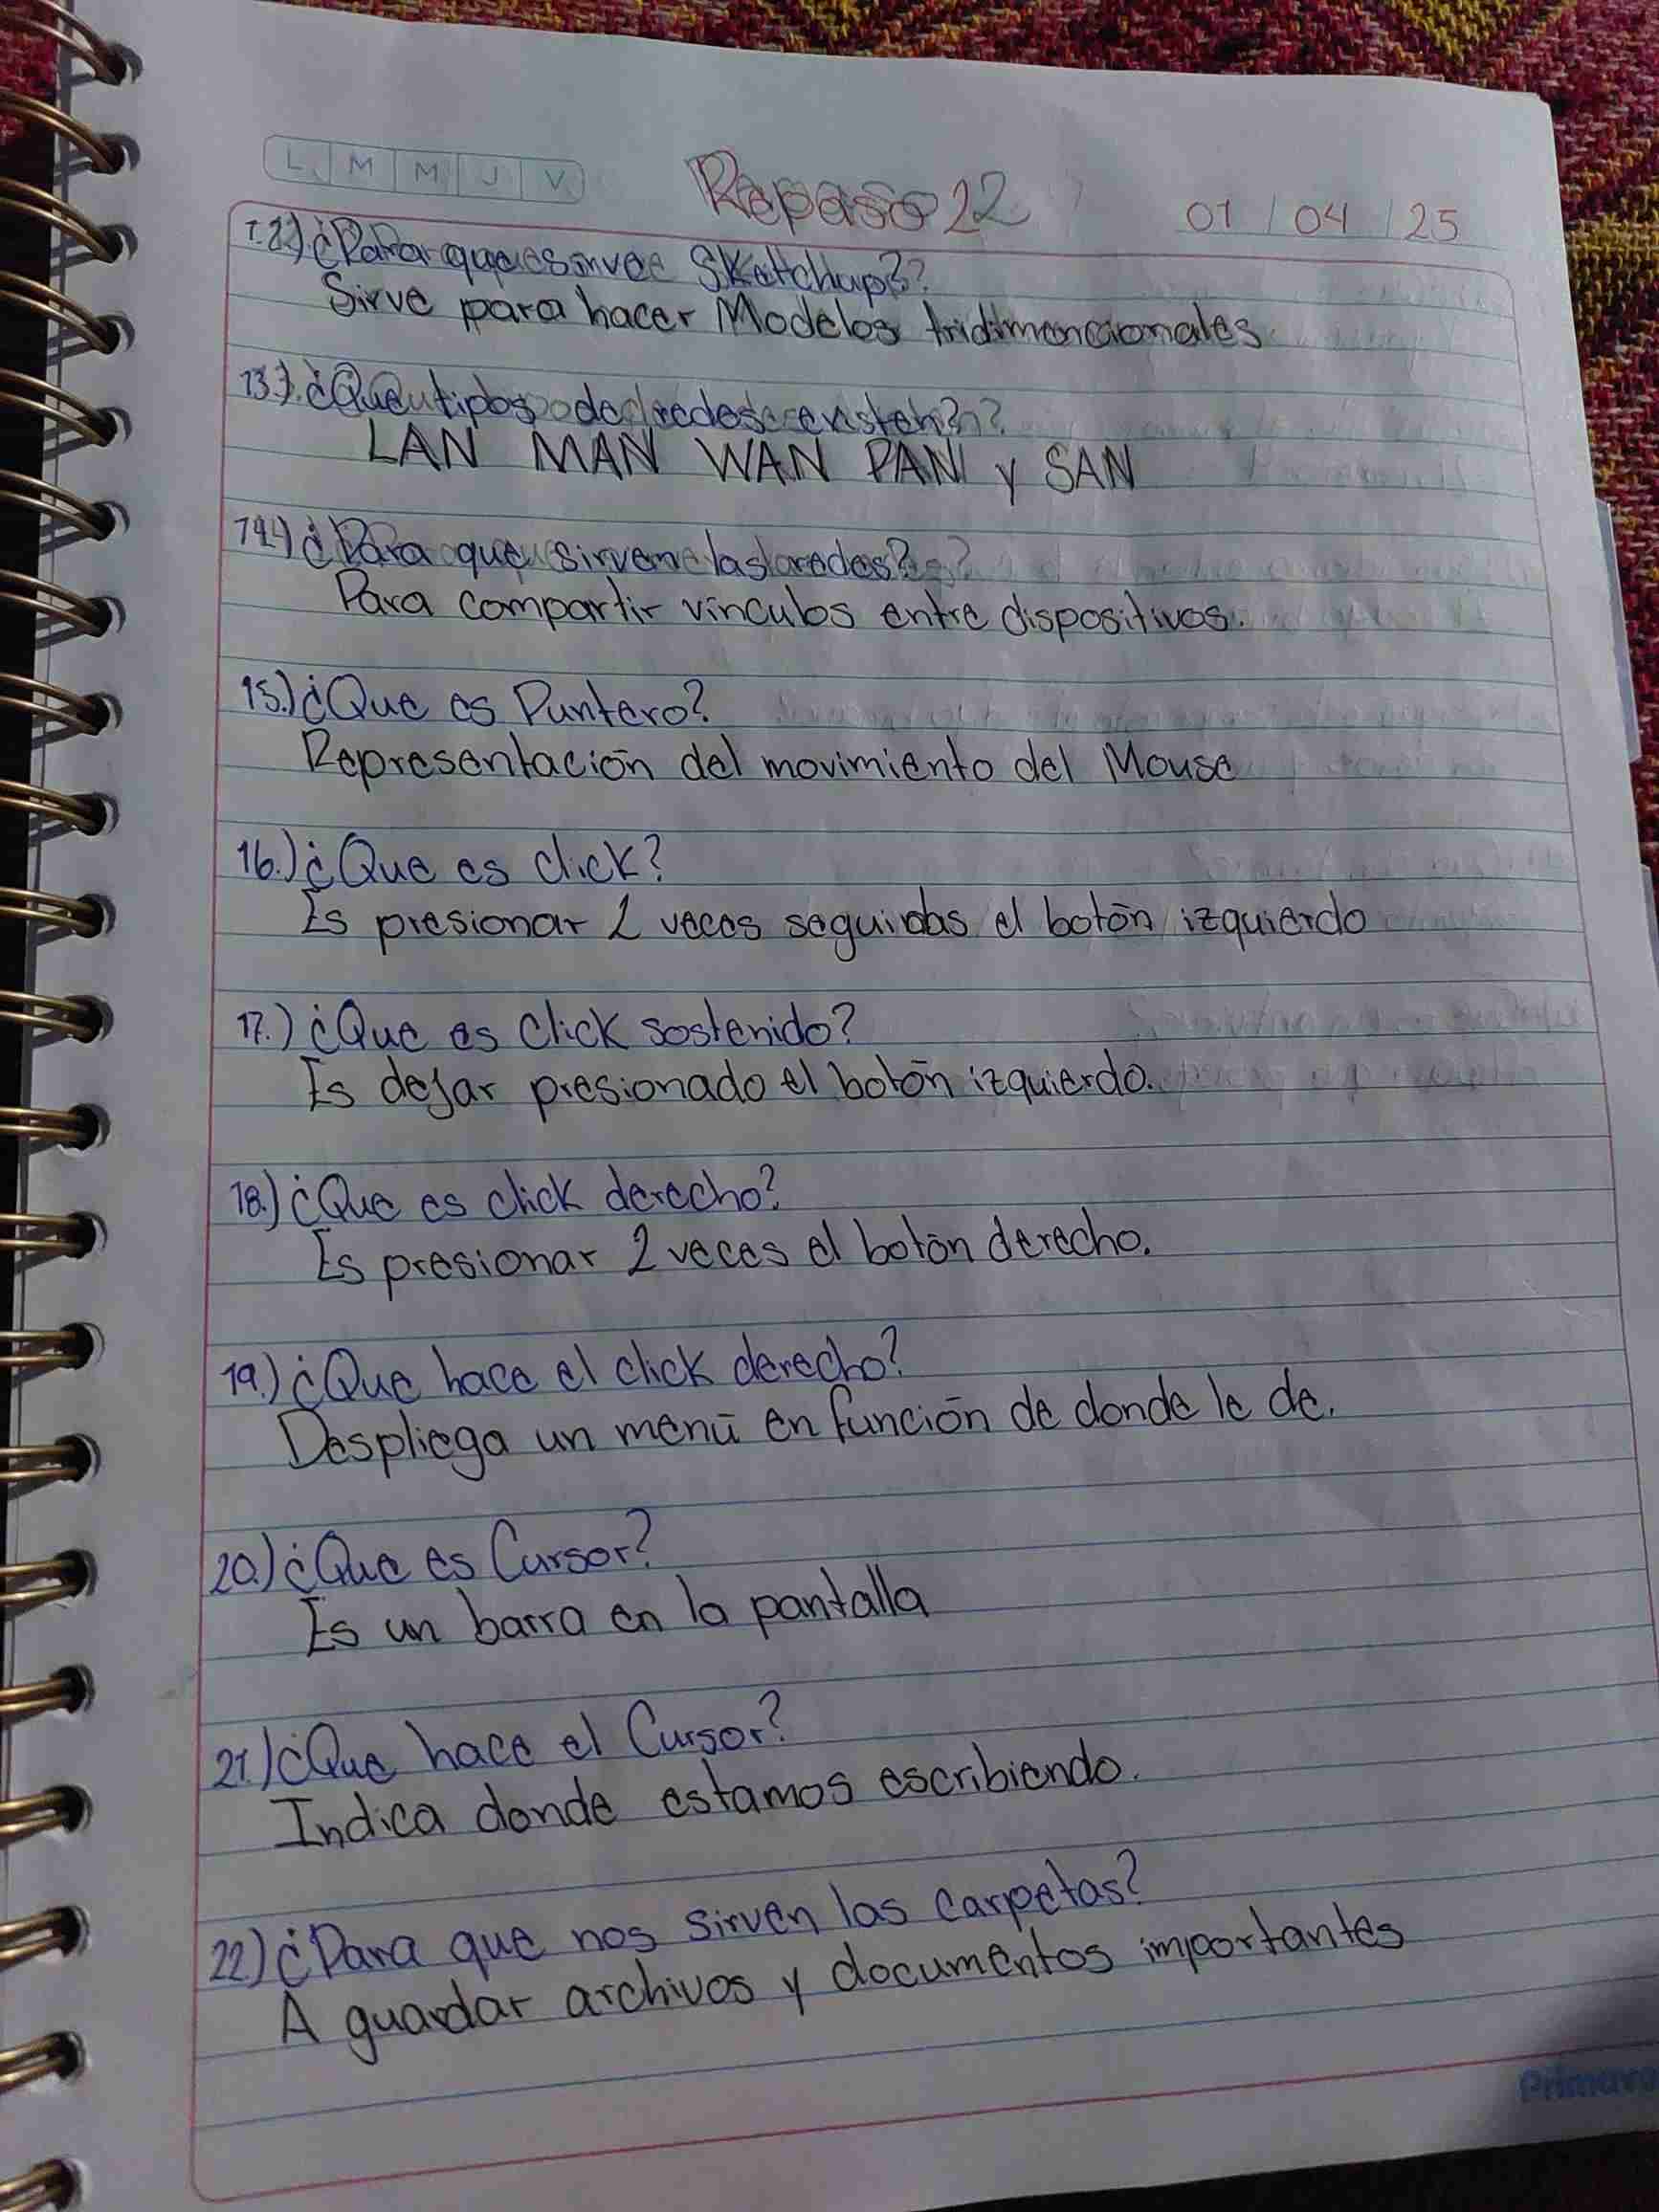 L M M J V
Repaso 22
01 / 04 / 25
12.) ¿Para que sirve SKetchup?
Sirve para hacer Modelos tridimencionales
13.) ¿Que tipos de redes existen?
LAN MAN WAN PAN y SAN
14.) ¿Para que sirven las redes?
Para compartir vinculos entre dispositivos.
15.) ¿Que es Puntero?
Representación del movimiento del Mouse
16.) ¿Que es click?
Es presionar 2 veces seguidas el botón izquierdo
17.) ¿Que es Click sostenido?
Es dejar presionado el botón izquierdo.
18.) ¿Que es click derecho?
Es presionar 2 veces el botón derecho.
19.) ¿Que hace el click derecho?
Despliega un menú en función de donde le de.
20.) ¿Que es Cursor?
Es un barra en la pantalla
21.) ¿Que hace el Cursor?
Indica donde estamos escribiendo.
22.) ¿Para que nos sirven las carpetas?
A guardar archivos y documentos importantes